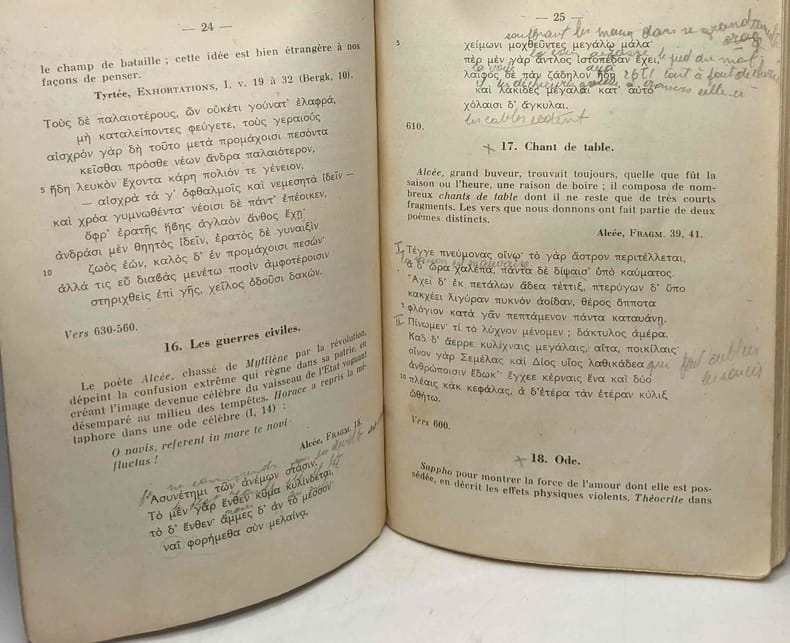 — 24 —
le champ de bataille ; cette idée est bien étrangère à nos
façons de penser.
Tyrtée, EXHORTATIONS, I, v. 19 à 32 (Bergk, 10).
Τοὺς δὲ παλαιοτέρους, ὧν οὐκέτι γούνατ' ἐλαφρά,
μὴ καταλείποντες φεύγετε, τοὺς γεραιούς
αἰσχρὸν γὰρ δὴ τοῦτο μετὰ προμάχοισι πεσόντα
κεῖσθαι πρόσθε νέων ἄνδρα παλαιότερον,
5 ἤδη λευκὸν ἔχοντα κάρη πολιόν τε γένειον,
— αἰσχρὰ τά γ' ὀφθαλμοῖς καὶ νεμεσητὰ ἰδεῖν —
καὶ χρόα γυμνωθέντα· νέοισι δὲ πάντ' ἐπέοικεν,
ὄφρ' ἐρατῆς ἥβης ἀγλαὸν ἄνθος ἔχῃ·
ἀνδράσι μὲν θηητὸς ἰδεῖν, ἐρατὸς δὲ γυναιξὶν
10 ζωὸς ἐών, καλὸς δ' ἐν προμάχοισι πεσών·
ἀλλά τις εὖ διαβὰς μενέτω ποσὶν ἀμφοτέροισιν
στηριχθεὶς ἐπὶ γῆς, χεῖλος ὀδοῦσι δακών.
Vers 630-560.
16. Les guerres civiles.
Le poète Alcée, chassé de Mytilène par la révolution,
dépeint la confusion extrême qui règne dans sa patrie, en
créant l'image devenue célèbre du vaisseau de l'Etat voguant
désemparé au milieu des tempêtes. Horace a repris la mé-
taphore dans une ode célèbre (I, 14) :
O navis, referent in mare te novi
fluctus !
Alcée, FRAGM. 18.
Ἀσυνέτημι τῶν ἀνέμων στάσιν.
Τὸ μὲν γὰρ ἔνθεν κῦμα κυλίνδεται,
τὸ δ' ἔνθεν· ἄμμες δ' ἀν τὸ μέσσον
ναῖ φορήμεθα σὺν μελαίνᾳ,
— 25 —
souffrant les maux dans ce grand
5 χείμωνι μοχθεῦντες μεγάλῳ μάλα·
le pied du mat
πὲρ μὲν γὰρ ἄντλος ἰστοπέδαν ἔχει,
λαῖφος δὲ πὰν ζάδηλον ἤδη
tout à fait
καὶ λάκιδες μέγαλαι κατ' αὐτο
χόλαισι δ' ἄγκυλαι.
les cables cèdent
610.
17. Chant de table.
Alcée, grand buveur, trouvait toujours, quelle que fût la
saison ou l'heure, une raison de boire ; il composa de nom-
breux chants de table dont il ne reste que de très courts
fragments. Les vers que nous donnons ont fait partie de deux
poèmes distincts.
Alcée, FRAGM. 39, 41.
I Τέγγε πνεύμονας οἴνῳ· τὸ γὰρ ἄστρον περιτέλλεται,
ἀ δ' ὤρα χαλέπα, πάντα δὲ δίψαισ' ὑπὸ καύματος.
Ἄχει δ' ἐκ πετάλων ἄδεα τέττιξ, πτερύγων δ' ὔπο
κακχέει λιγύραν πυκνὸν ἀοίδαν, θέρος ὄπποτα
5 φλόγιον κατὰ γᾶν πεπτάμενον πάντα καταυάνῃ.
II Πίνωμεν· τί τὸ λύχνον μένομεν ; δάκτυλος ἀμέρα.
Κὰδ δ' ἄερρε κυλίχναις μεγάλαις, αἶτα, ποικίλαις·
οἶνον γὰρ Σεμέλας καὶ Δίος υἶος λαθικάδεα
qui fait oublier
les soucis
ἀνθρώποισιν ἔδωκ'· ἔγχεε κέρναις ἔνα καὶ δύο
10 πλέαις κὰκ κεφάλας, ἀ δ'ἐτέρα τὰν ἐτέραν κύλιξ
ὠθήτω.
Vers 600.
18. Ode.
Sappho pour montrer la force de l'amour dont elle est pos-
sédée, en décrit les effets physiques violents. Théocrite dans